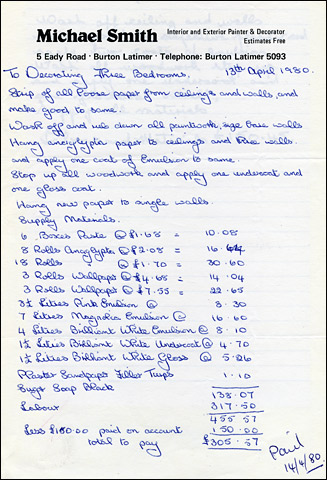 Michael Smith
Interior and Exterior Painter & Decorator
Estimates Free
5 Eady Road · Burton Latimer · Telephone: Burton Latimer 5093
To Decorating Three Bedrooms. 13th April 1980.
Strip off all loose paper from ceilings and walls, and
make good to same.
Wash off and rub down all paintwork, size bare walls
Hang anaglypta paper to ceilings and three walls.
and apply one coat of Emulsion to same.
Stop up all woodwork and apply one undercoat and
one gloss coat.
Hang new paper to single walls.
Supply Materials.
6 Boxes Paste @ £1.68 = 10.08
8 Rolls Anaglypta @ £2.08 = 16.64
18 Rolls " @ £1.70 = 30.60
3 Rolls Wallpaper @ £4.68 = 14.04
3 Rolls Wallpaper @ £7.55 = 22.65
3½ Litres Pink Emulsion @ 8.30
7 Litres Magnolia Emulsion @ 16.60
4 Litres Brilliant White Emulsion @ 8.10
1½ Litres Brilliant White Undercoat @ 4.70
1½ Litres Brilliant White Gloss @ 5.26
Plaster Sandpaper Filler Turps 1.10
Sugar Soap Black
138.07
Labour 317.50
455.57
Less £150.00 paid on account 150.00
total to pay £305.57
Paid
14/4/80